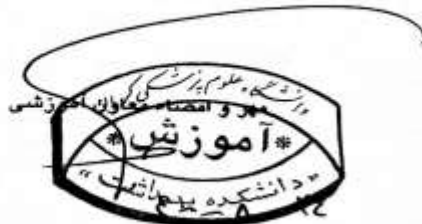 دانشگاه علوم پزشکی
مهر و امضاء معاون آموزشی
*آموزش*
«دانشکده بهداشت»